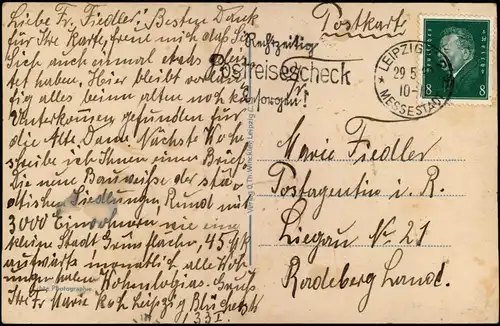 Liebe Fr. Fiedler! Besten Dank
für Ihre Karte, freue mich daß Sie
Sich auch einmal etwas
tet haben. Hier bleibt
fig alles beim alten noch
Unterkommen gefunden für
die Alte Dame. Nächste Wo
schreibe ich Ihnen einen Brief.
Die neue Bauweise der stä
tischen Siedlungen. Rund mit
3000 Einwohnern, wie eine
kleine Stadt Grünflächen, 45 M
aufwärts monatlich alle Woh
nungen haben Gruß
Ihre Fr. Marie Leipzig
33 I
Echte Photographie
Verlag Leipzig
Postkarte
Rechtzeitig
Postreisescheck
besorgen!
LEIPZIG
29.5.
10-
MESSESTADT
Deutsches Reich
8 8
Marie Fiedler
Postagentin i. R.
Liegau No 21
Radeberg Land.